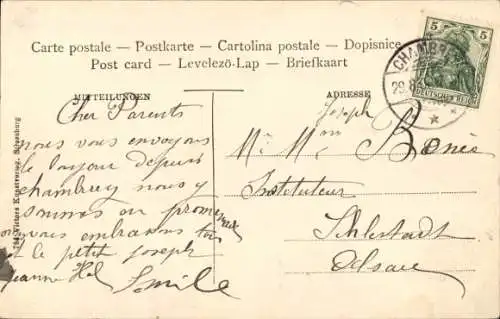 Carte postale — Postkarte — Cartolina postale — Dopisnice
Post card — Levelezö-Lap — Briefkaart
MITTEILUNGEN
ADRESSE
5 5
DEUTSCHES REICH
CHAMBR
29.8
Cher Parents
nous vous envoyons
le bonjour depuis
chambrey nous y
sommes en promenade
vous embrassons
et le petit Joseph
Jeanne
Emile
Joseph
M. Mme
Instituteur
Schlestadt
Alsace